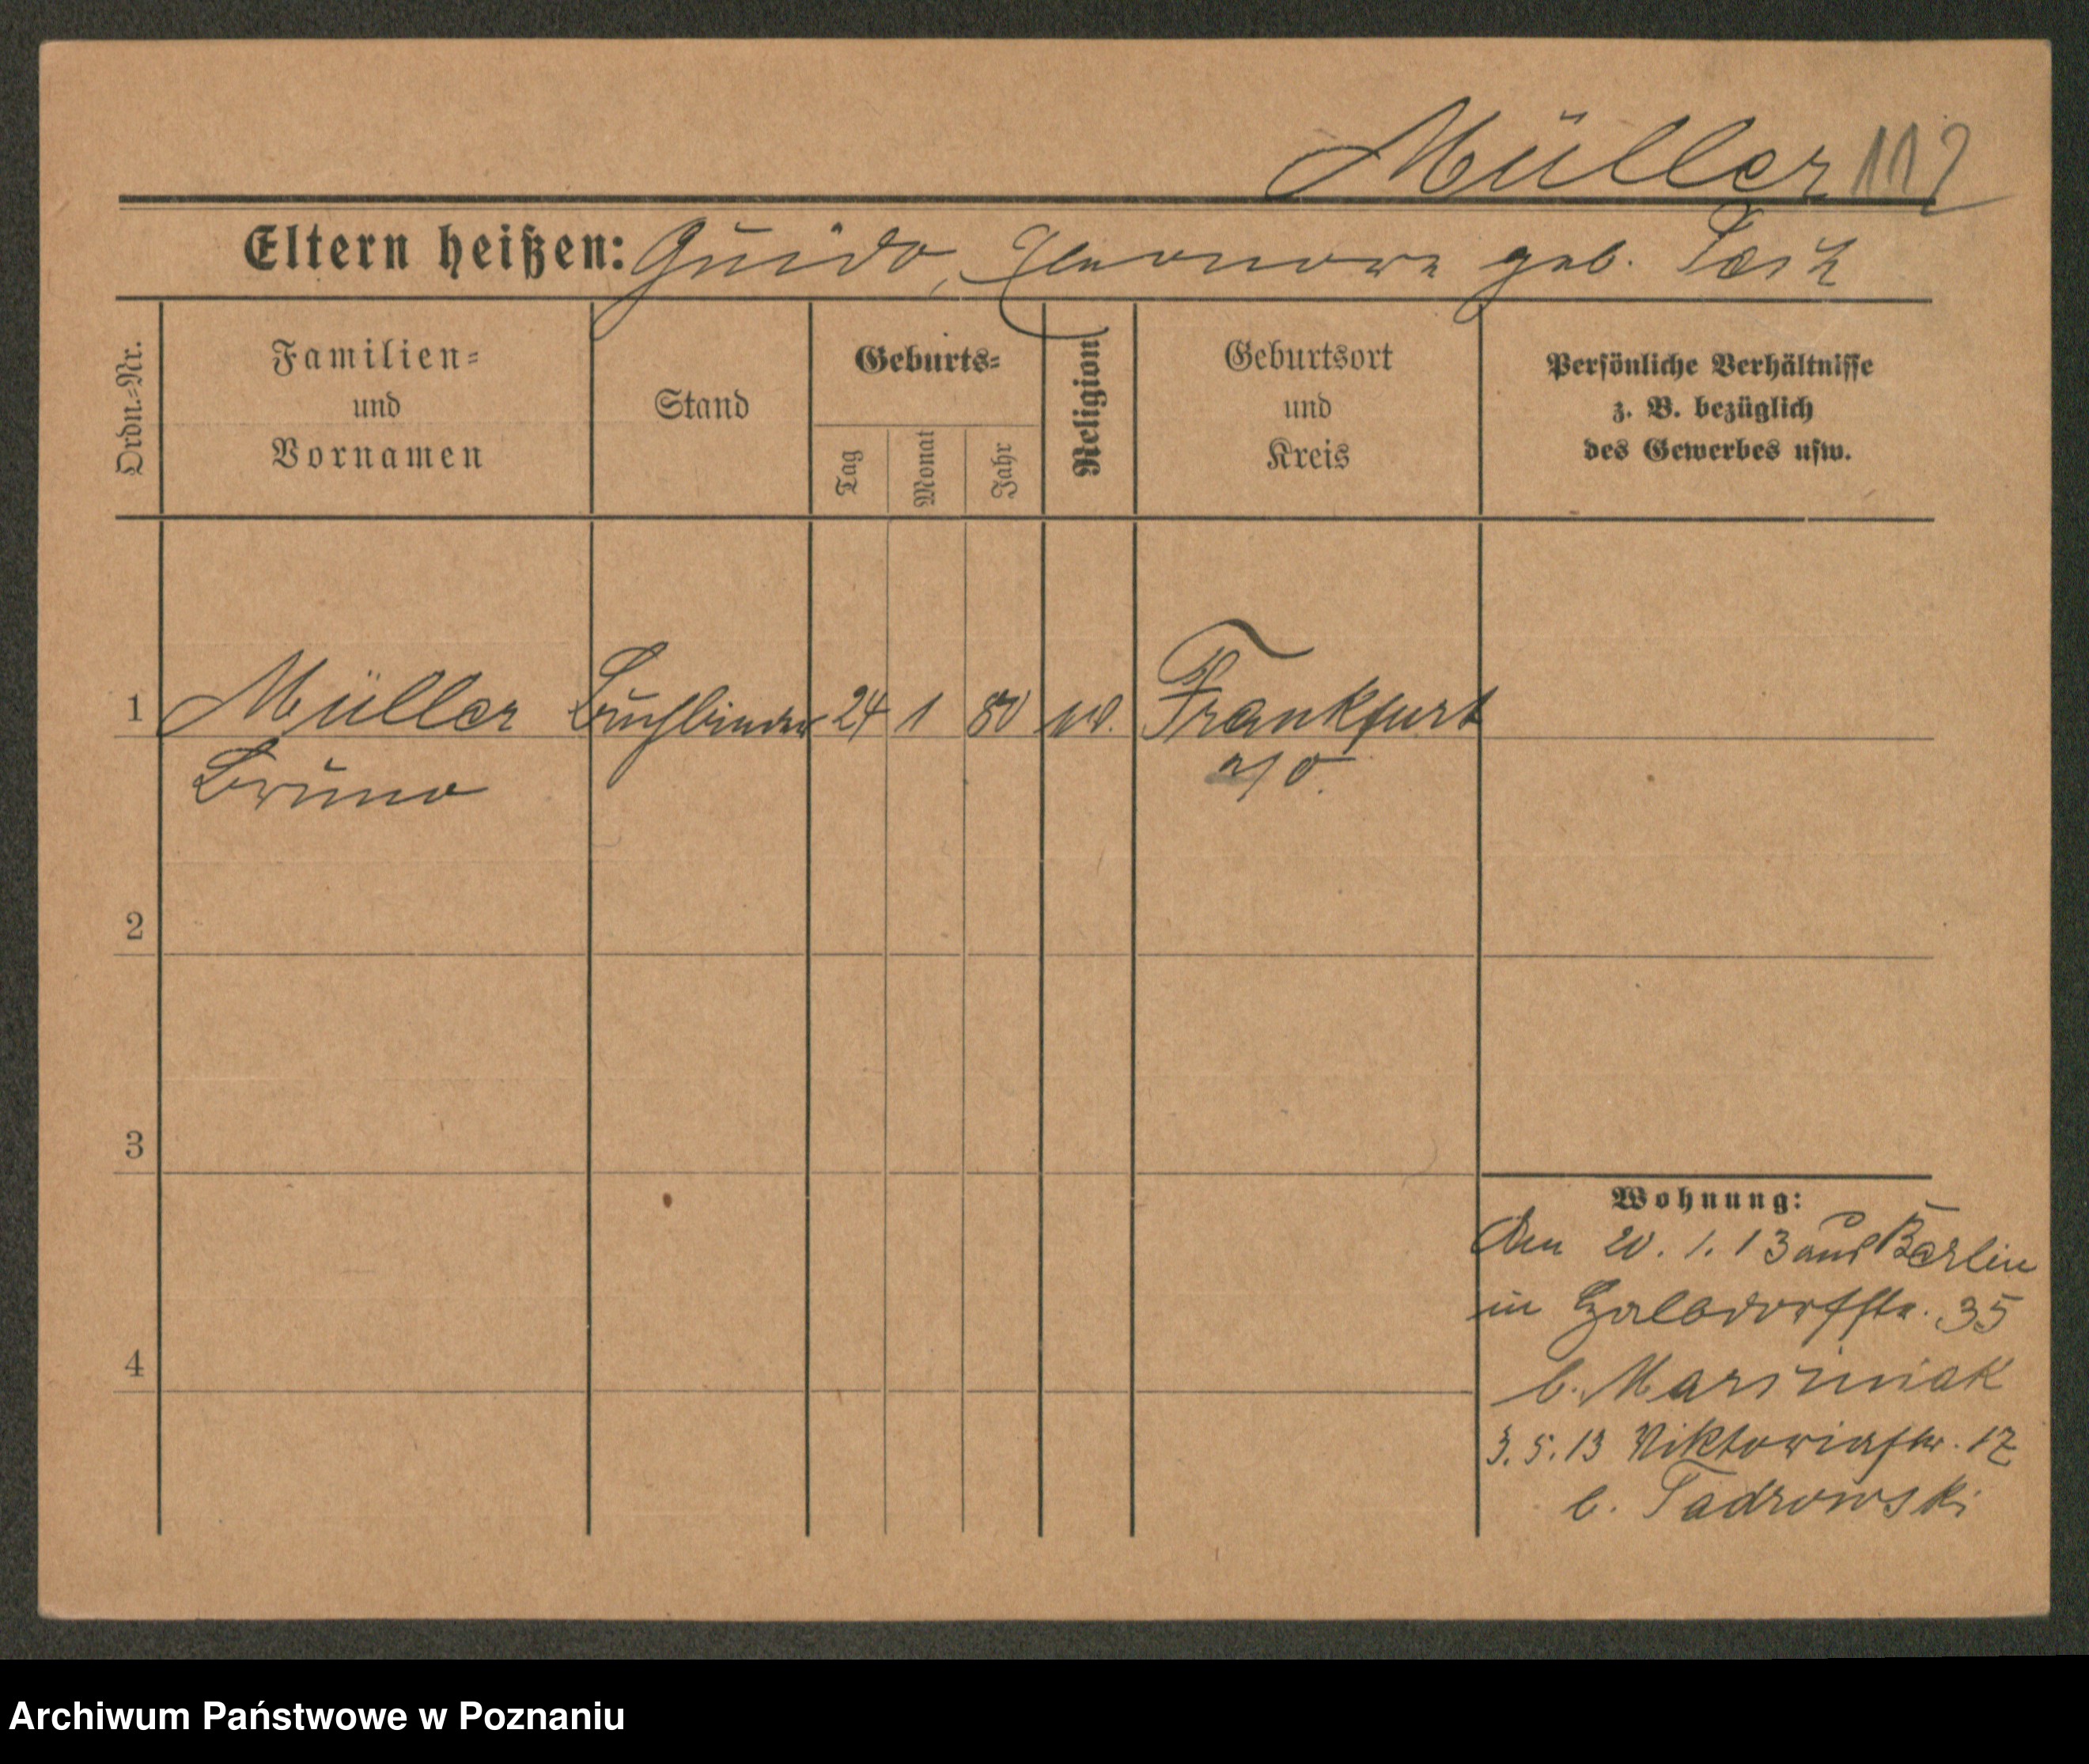 Müller 112
Eltern heißen: Guido, Eleonore geb.
Ordn.-Nr.
Familien-
und
Vornamen
Stand
Geburts-
Tag
Monat
Jahr
Religion
Geburtsort
und
Kreis
Persönliche Verhältnisse
z. B. bezüglich
des Gewerbes usw.
1 Müller Buchbinder 24 1 80 ev. Frankfurt
Bruno a/O.
2
3
4
Wohnung:
Den 20. 1. 13 aus Berlin
in 35
b.
3. 5. 13 Viktoriastr. 17
b. Tadrowski
Archiwum Państwowe w Poznaniu